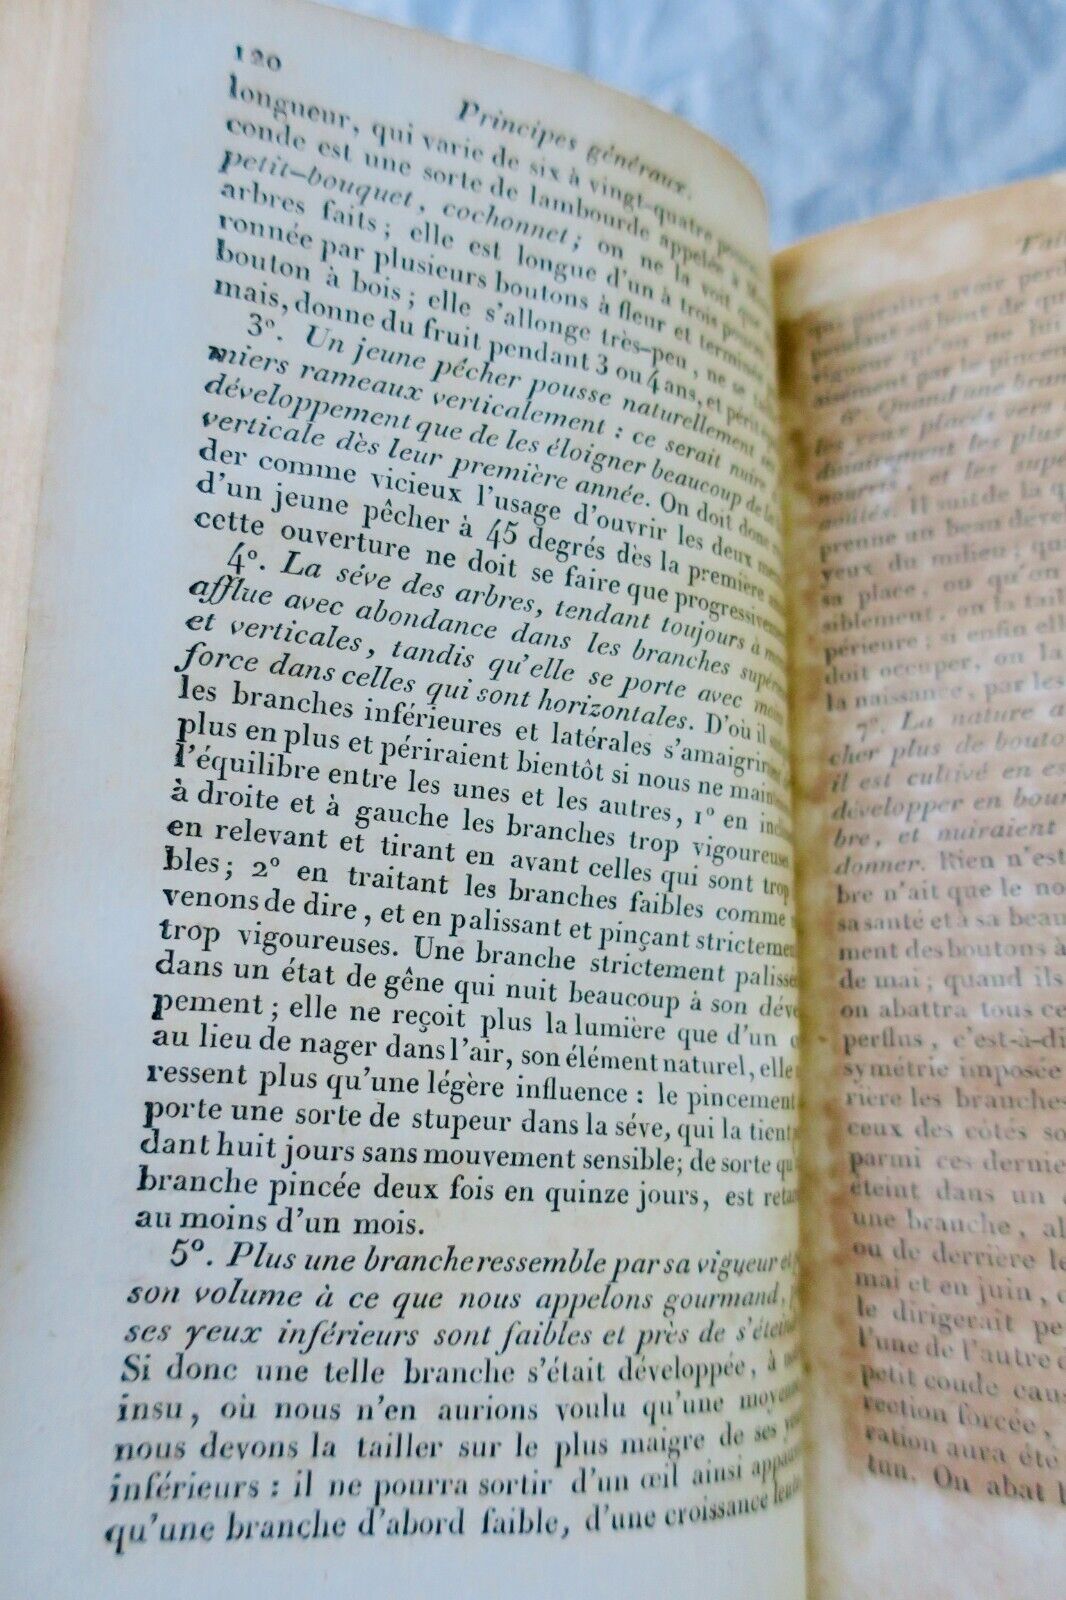 120
Principes généraux.
longueur, qui varie de six à vingt-quatre
conde est une sorte de lambourde appelée à
petit-bouquet, cochonnet; on ne la voit que
arbres faits; elle est longue d'un à trois pouces
ronnée par plusieurs boutons à fleur et terminée
bouton à bois; elle s'allonge très-peu, ne se
mais, donne du fruit pendant 3 ou 4 ans, et périt
3°. Un jeune pêcher pousse naturellement ses
miers rameaux verticalement : ce serait nuire
développement que de les éloigner beaucoup de la
verticale dès leur première année. On doit donc
der comme vicieux l'usage d'ouvrir les deux
d'un jeune pêcher à 45 degrés dès la première
cette ouverture ne doit se faire que progressivement
4°. La séve des arbres, tendant toujours à
afflue avec abondance dans les branches
et verticales, tandis qu'elle se porte avec moins
force dans celles qui sont horizontales. D'où il
les branches inférieures et latérales s'amaigriraient
plus en plus et périraient bientôt si nous ne
l'équilibre entre les unes et les autres, 1° en
à droite et à gauche les branches trop vigoureuses
en relevant et tirant en avant celles qui sont trop
bles; 2° en traitant les branches faibles comme
venons de dire, et en palissant et pinçant strictement
trop vigoureuses. Une branche strictement
dans un état de gêne qui nuit beaucoup à son déve
pement; elle ne reçoit plus la lumière que d'un
au lieu de nager dans l'air, son élément naturel, elle
ressent plus qu'une légère influence : le pincement
porte une sorte de stupeur dans la séve, qui la tient
dant huit jours sans mouvement sensible; de sorte
branche pincée deux fois en quinze jours, est
au moins d'un mois.
5°. Plus une branche ressemble par sa vigueur et
son volume à ce que nous appelons gourmand,
ses yeux inférieurs sont faibles et près de
Si donc une telle branche s'était développée, à
insu, où nous n'en aurions voulu qu'une
nous devons la tailler sur le plus maigre de ses
inférieurs : il ne pourra sortir d'un œil ainsi
qu'une branche d'abord faible, d'une croissance
qui paraîtra avoir
pendant au bout de
vigueur qu'on ne lui
par le pincem
6°. Quand une bran
les yeux placés vers
les plus
et les
Il suit de la
prenne un beau
yeux du milieu; qu
sa place, ou qu'on
siblement, on la tail
périeure; si enfin elle
doit occuper, on la
la naissance, par les
7°. La nature a
cher plus de bouton
il est cultivé en es
développer en bour
bre, et nuiraient
donner. Rien n'est
bre n'ait que le no
sa santé et à sa beau
ment des boutons à
de mai; quand ils
on abattra tous ce
perflus, c'est-à-di
symétrie imposée
rière les branches
ceux des côtés so
parmi ces dernie
éteint dans un
une branche, al
ou de derrière le
mai et en juin,
le dirigerait pe
l'une de l'autre
petit coude cau
rection forcée,
ration aura été
tun. On abat